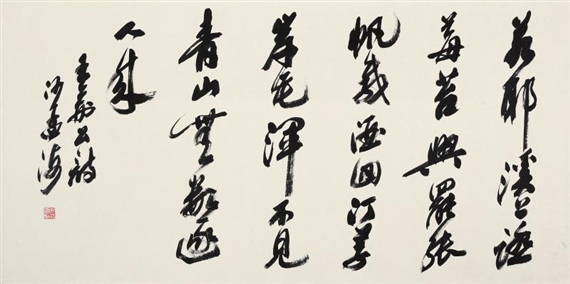 若耶溪上踏
莓苔興罷張
帆載酒回汀草
岸花渾不見
青山無數逐
人來
王荊公詩
沙孟海